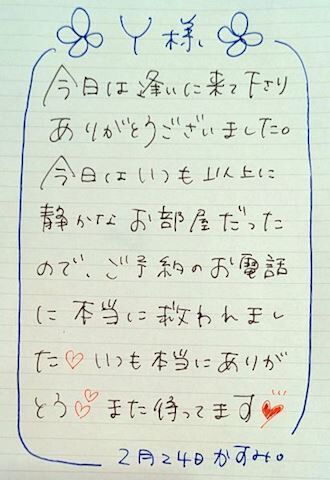 Y様、
今日は逢いに来て下さり
ありがとうございました。
今日はいつも以上に
静かなお部屋だった
ので、ご予約のお電話
に本当に救われまし
た♡いつも本当にありが
とう♡♡また待ってます♥
2月24日かすみ。